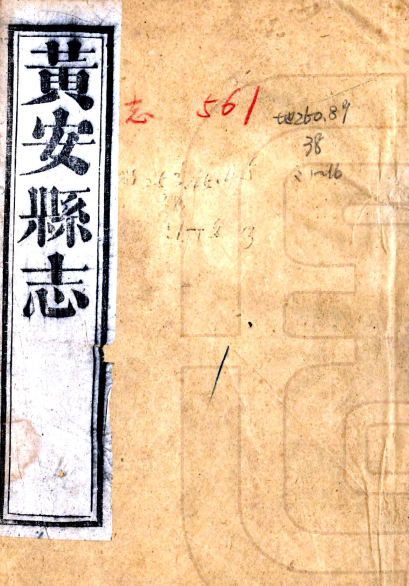 黃安縣志
志 561
地260.89
38
:1~16